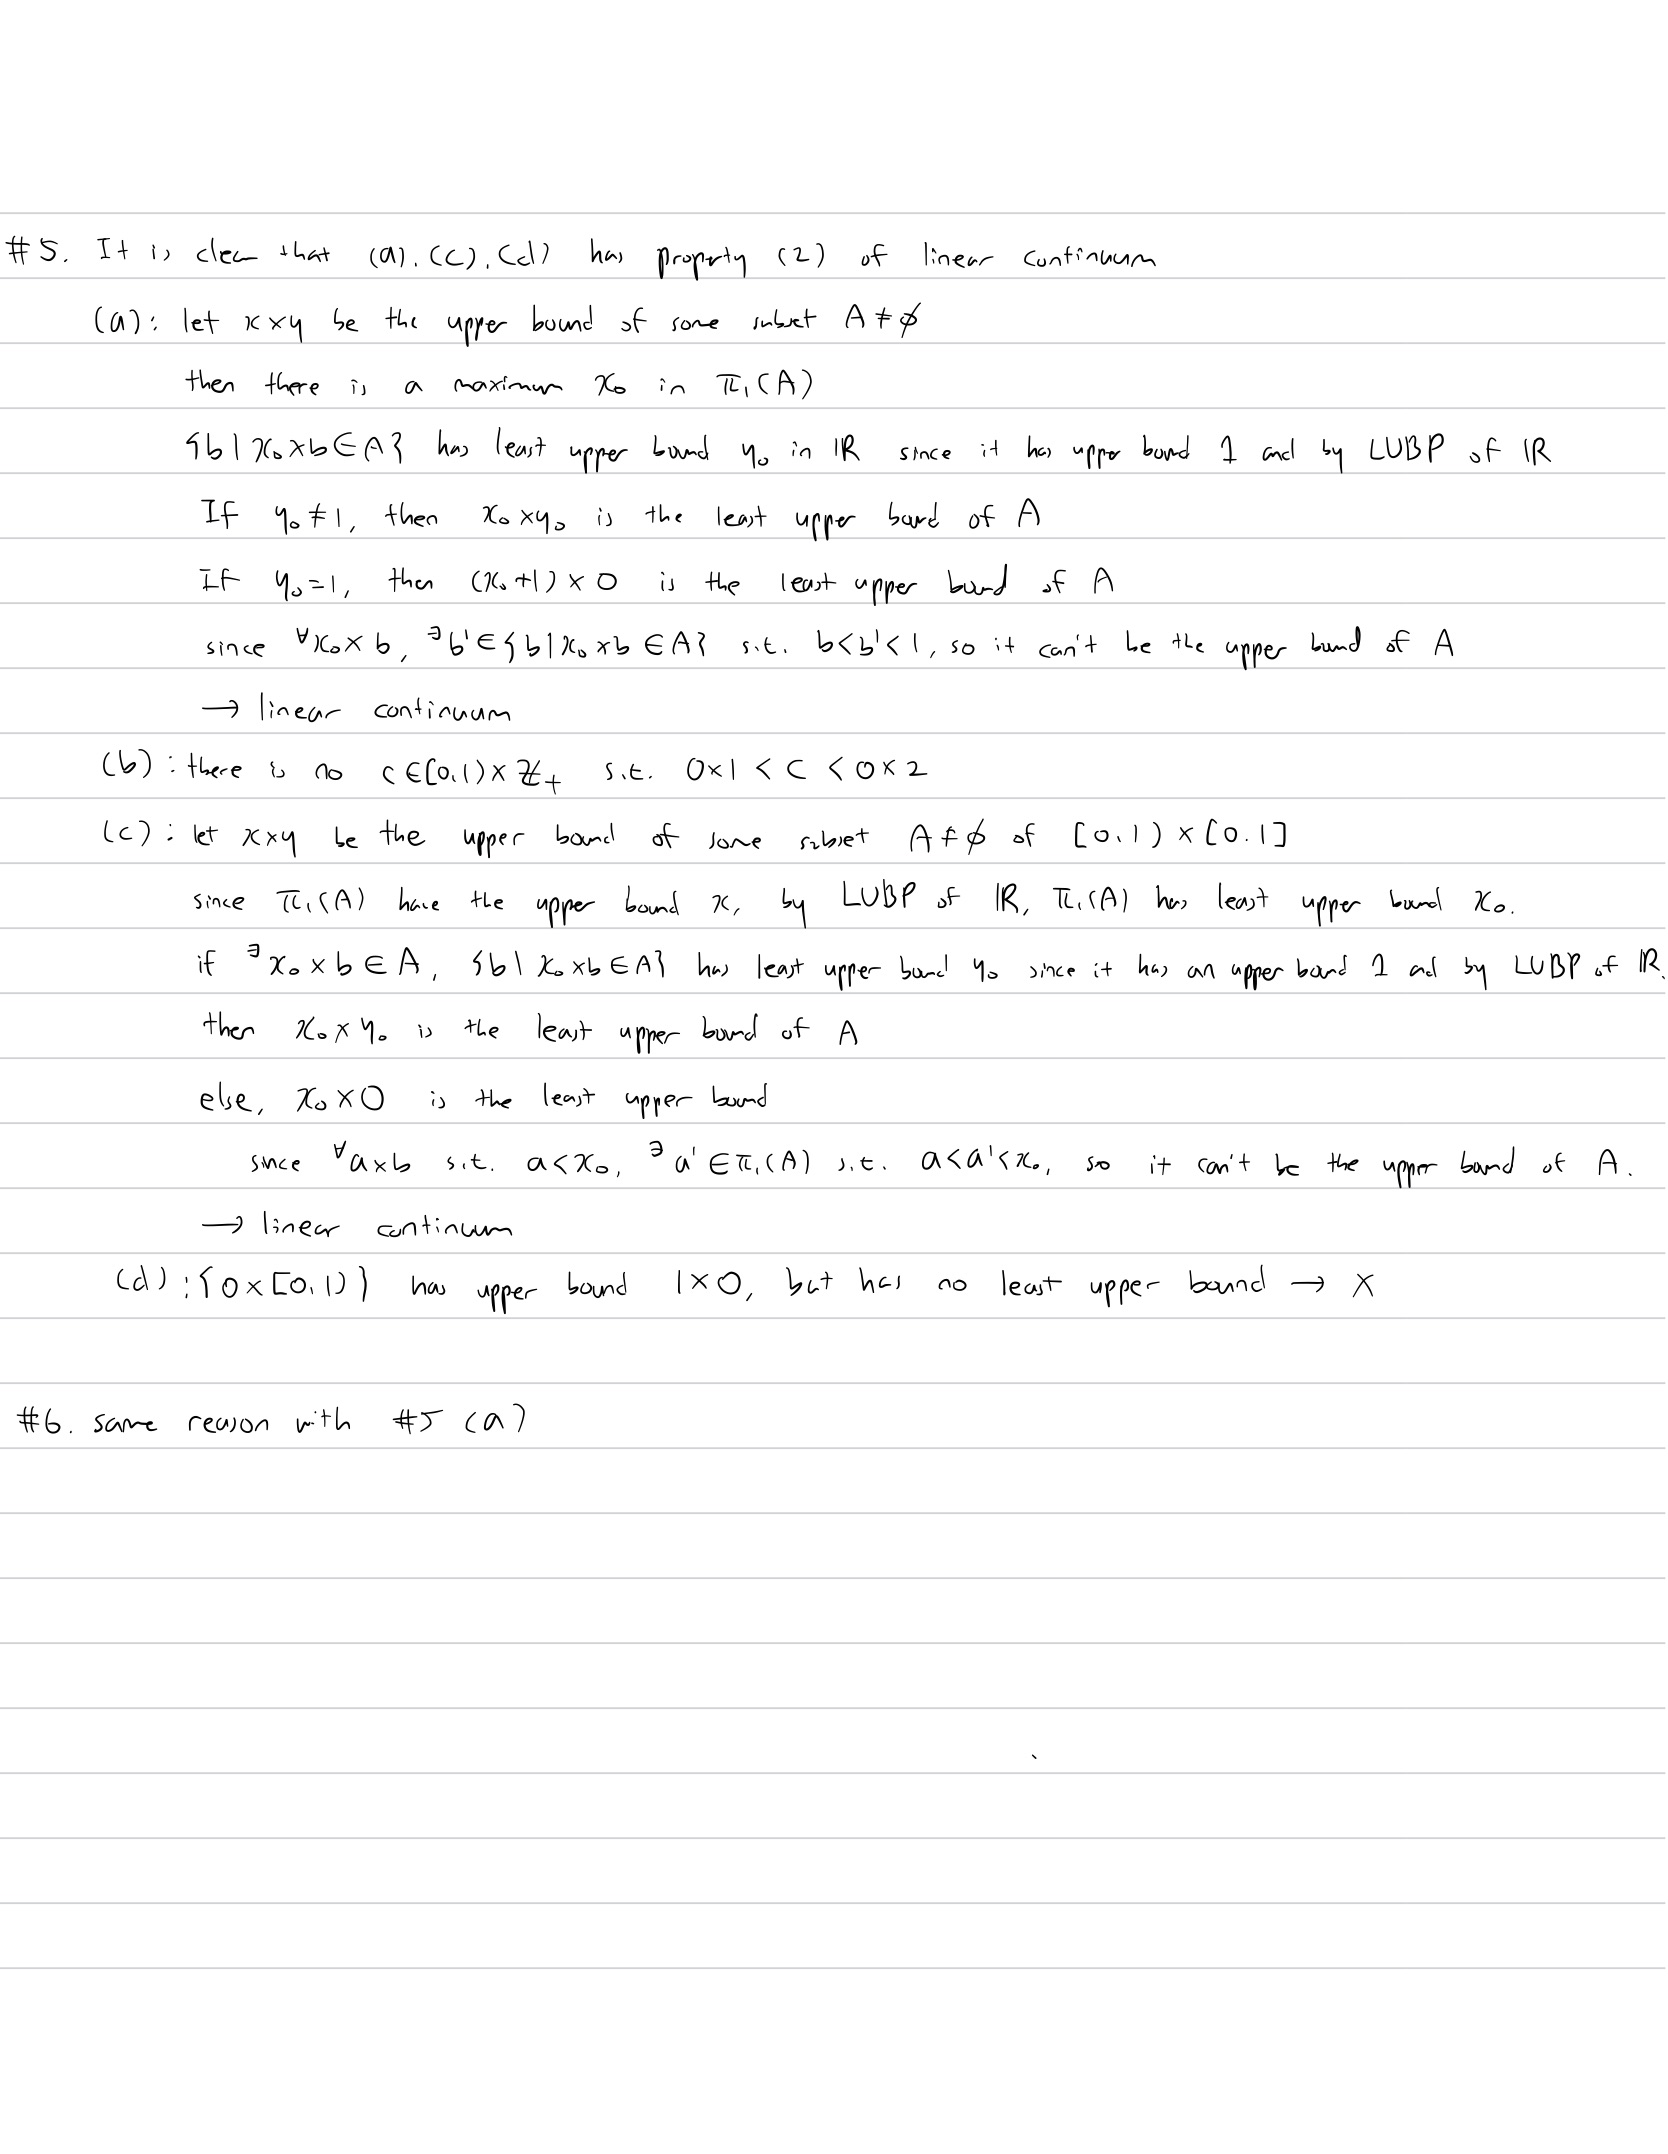 #5. It is clear that (a), (c), (d) has property (2) of linear continuum
(a): let x×y be the upper bound of some subset A≠∅
then there is a maximum x₀ in π₁(A)
{b|x₀×b∈A} has least upper bound y₀ in ℝ since it has upper bound 1 and by LUBP of ℝ
If y₀≠1, then x₀×y₀ is the least upper bound of A
If y₀=1, then (x₀+1)×0 is the least upper bound of A
since ∀x₀×b, ∃b'∈{b|x₀×b∈A} s.t. b<b'<1, so it can't be the upper bound of A
→ linear continuum
(b): there is no c∈[0,1)×ℤ₊ s.t. 0×1 < c < 0×2
(c): let x×y be the upper bound of some subset A≠∅ of [0,1)×[0,1]
since π₁(A) have the upper bound x, by LUBP of ℝ, π₁(A) has least upper bound x₀.
if ∃x₀×b∈A, {b|x₀×b∈A} has least upper bound y₀ since it has an upper bound 1 and by LUBP of ℝ.
then x₀×y₀ is the least upper bound of A
else, x₀×0 is the least upper bound
since ∀a×b s.t. a<x₀, ∃a'∈π₁(A) s.t. a<a'<x₀, so it can't be the upper bound of A.
→ linear continuum
(d): {0×[0,1)} has upper bound 1×0, but has no least upper bound → X
#6. same reason with #5 (a)